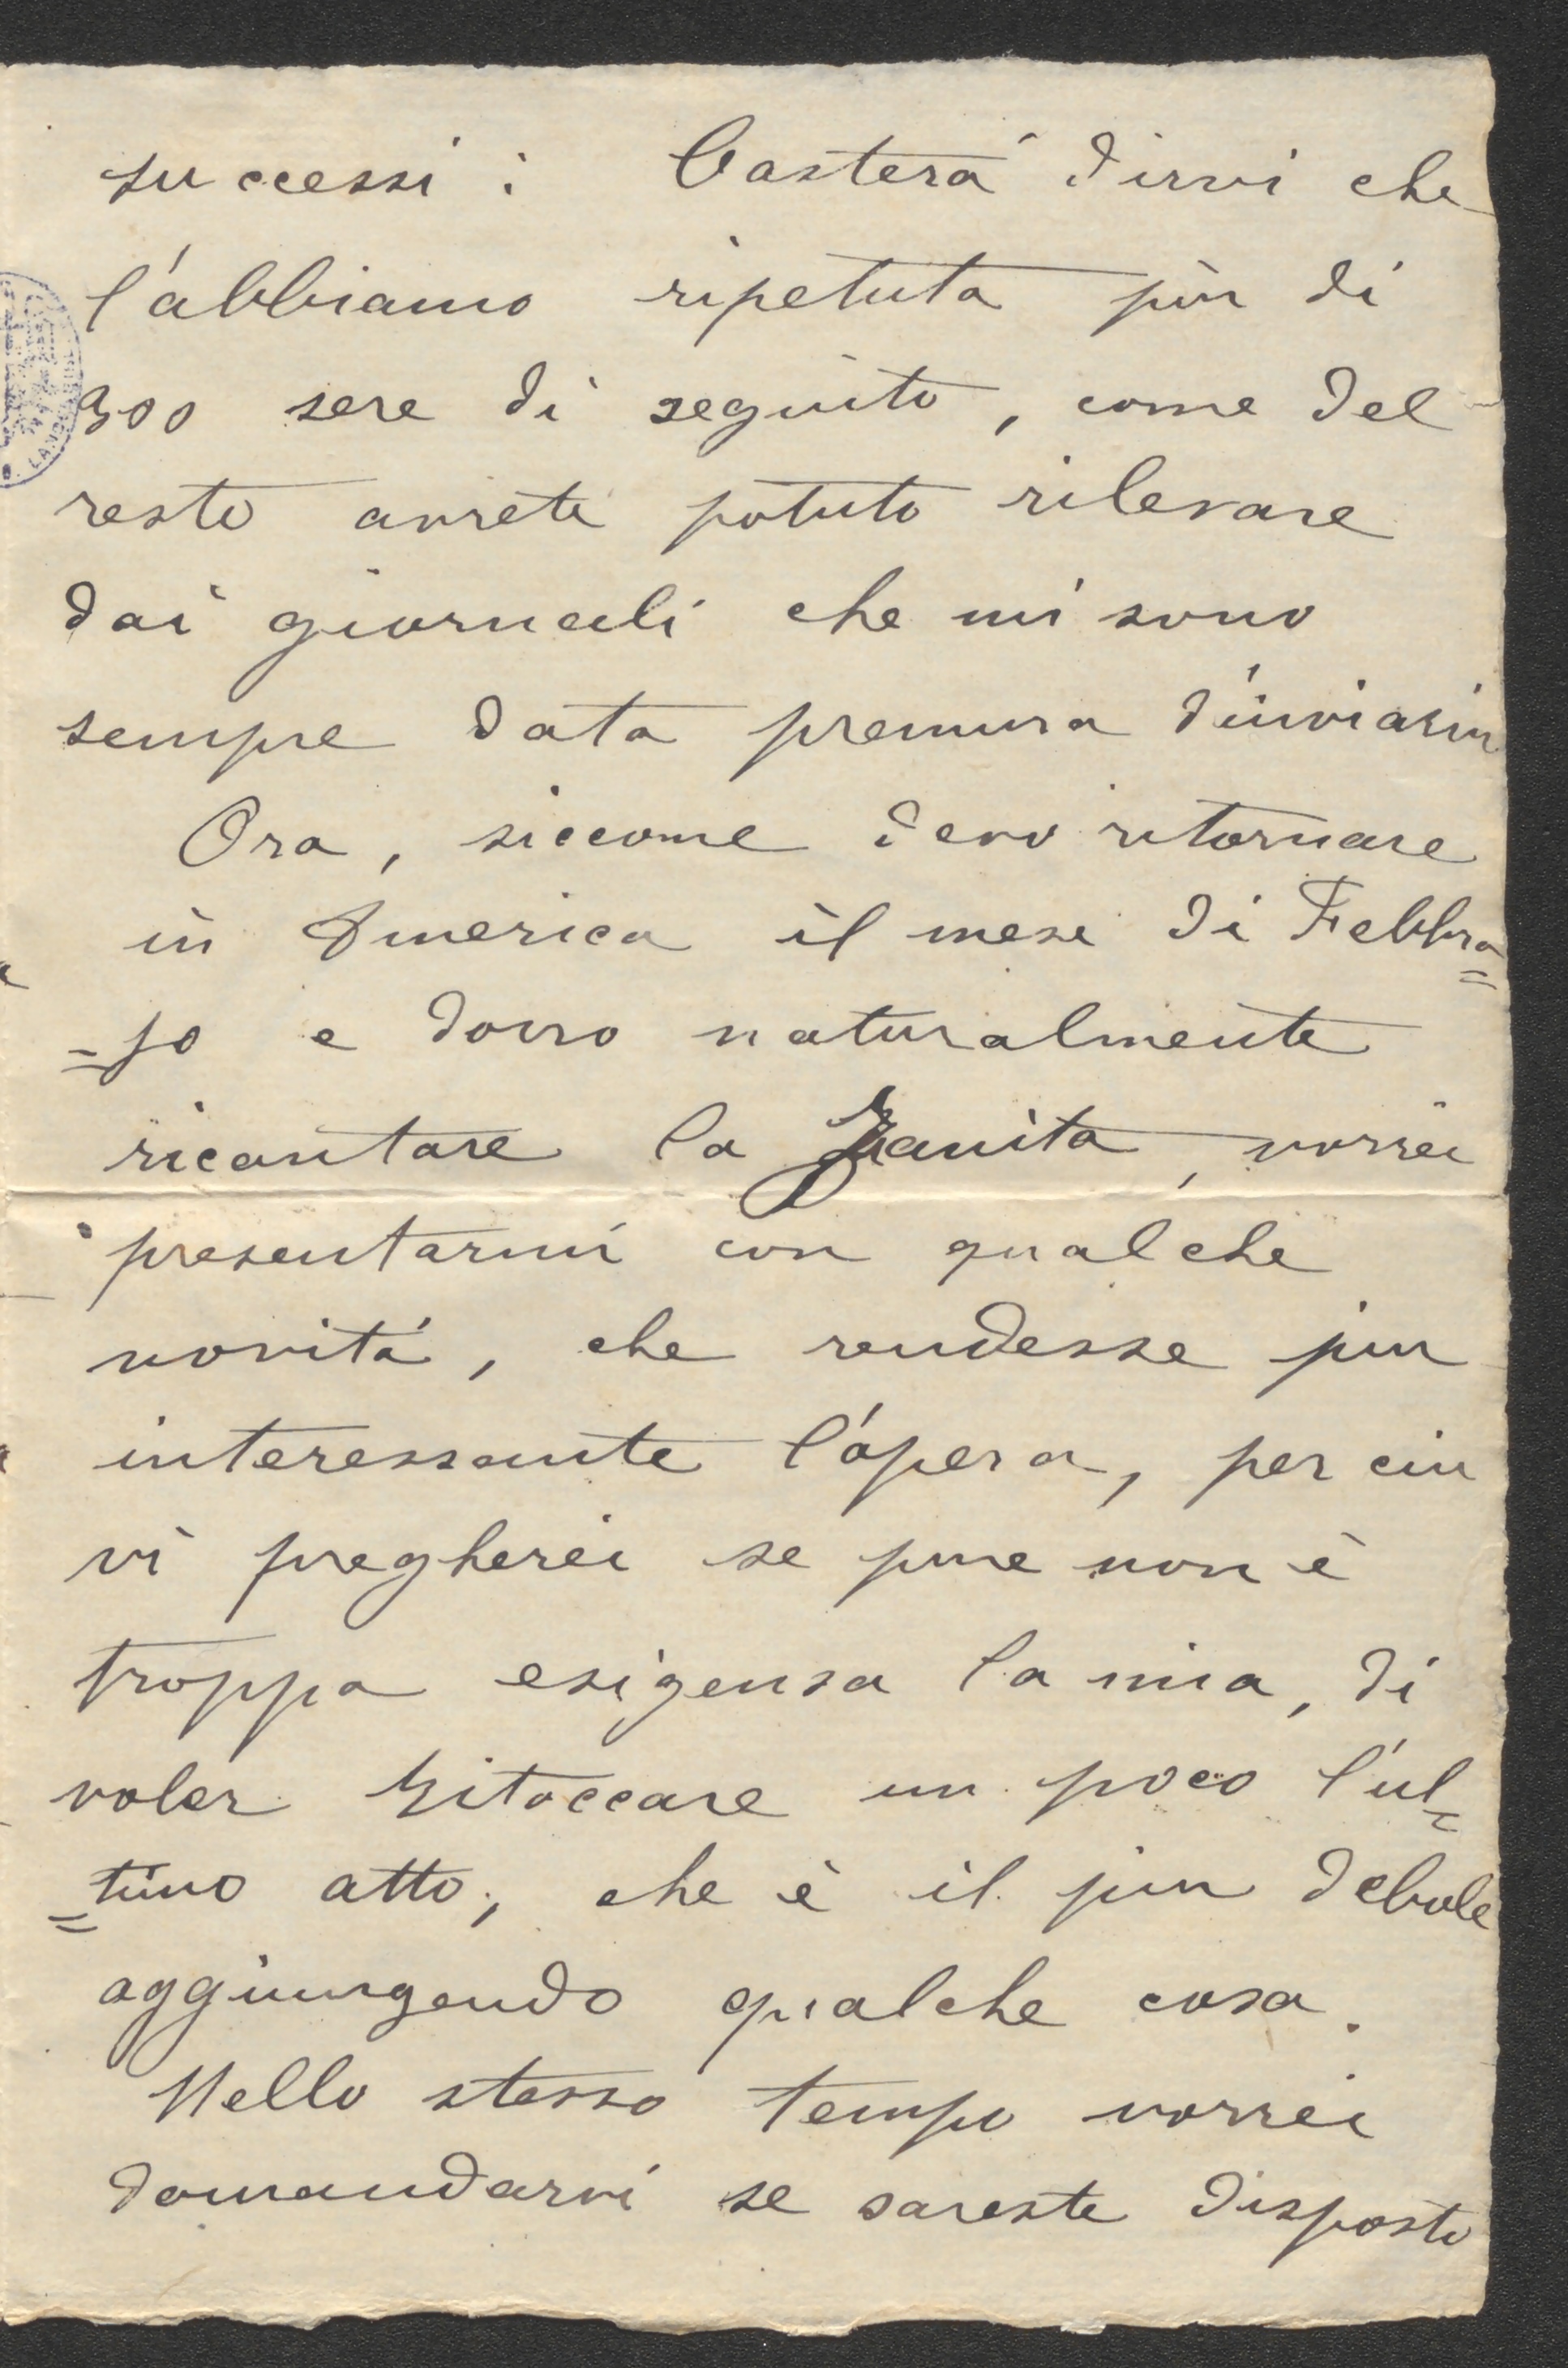 successi: Basterá dirvi che
l'abbiamo ripetuta più di
300 sere di seguito, come del
resto avrete potuto rilevare
dai giornali che mi sono
sempre data premura d'inviarvi
Ora, siccome devo ritornare
in America il mese di Febbra=
=jo e dovro naturalmente
ricantare la Zanita, vorrei
presentarmi con qualche
novitá, che rendesse piu
interessante l'opera, per cui
vi pregherei se pure non è
troppa esigensa la mia, di
voler ritoccare un poco l'ul=
=timo atto, che è il piu debole
aggiungendo qualche cosa.
Nello stesso tempo vorrei
domandarvi se sareste disposto